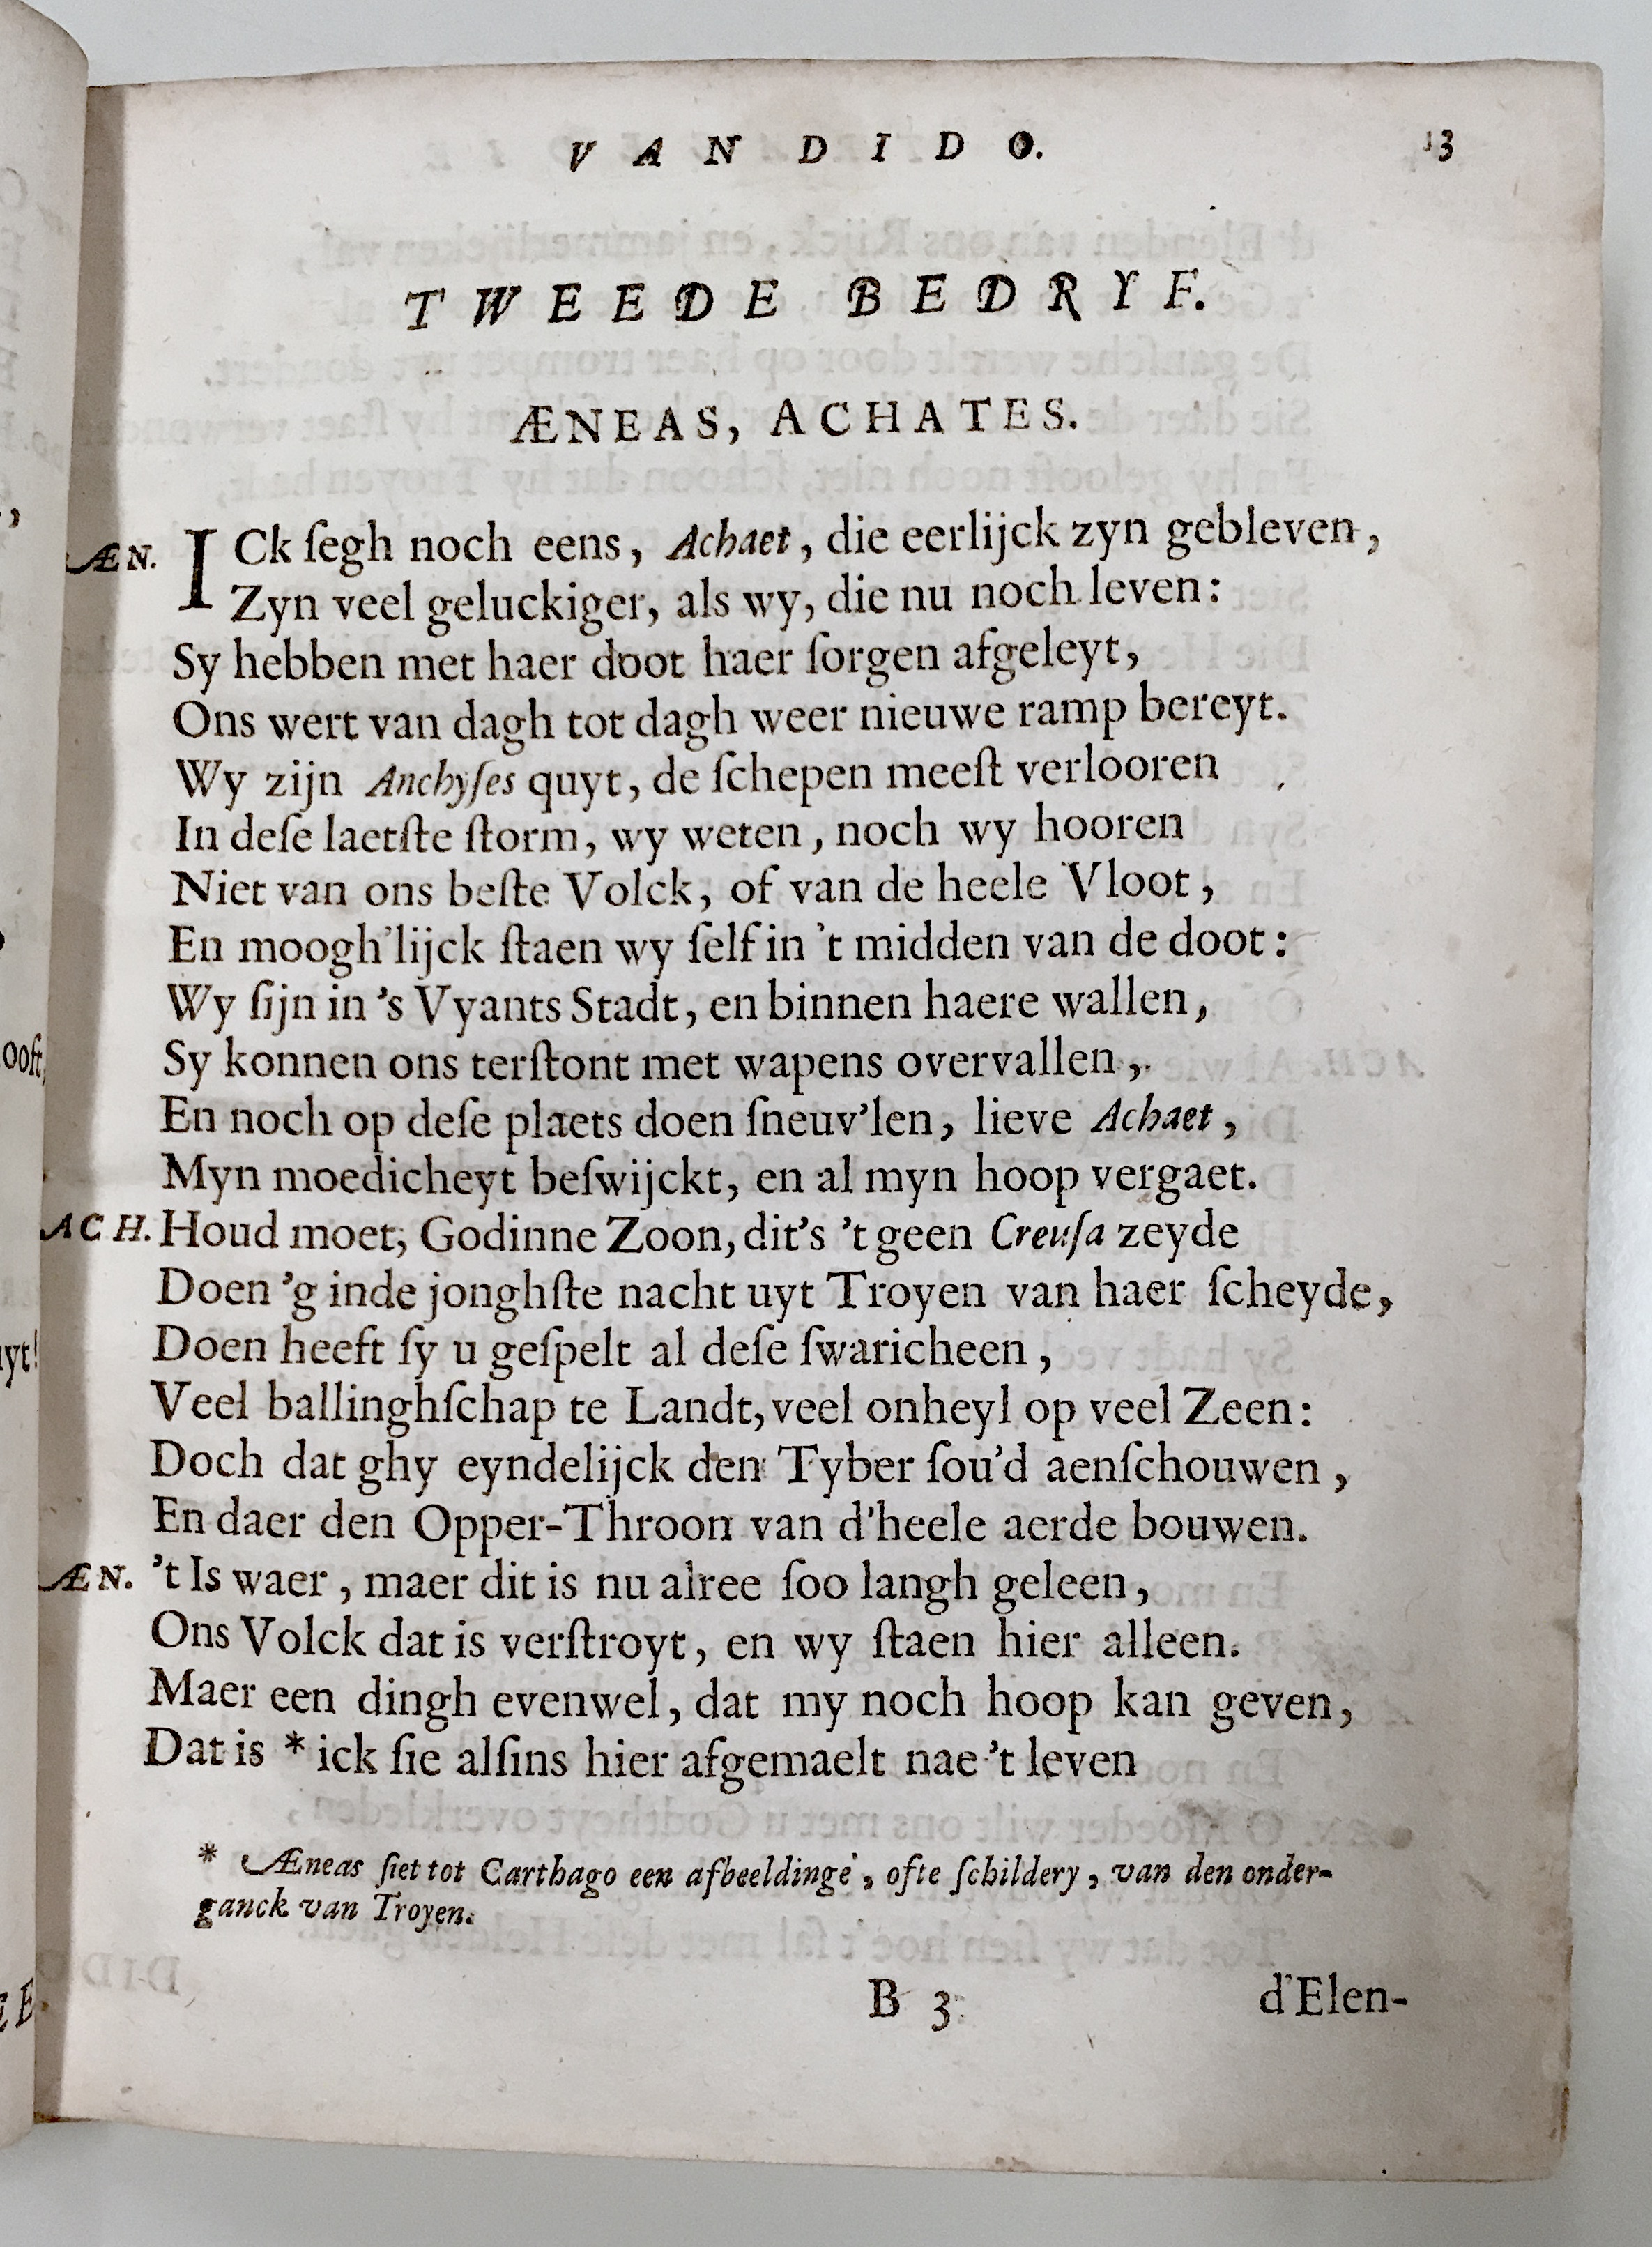 VAN DIDO. 13
TWEEDE BEDRYF.
ÆNEAS, ACHATES.
ÆN. ICk ſegh noch eens, Achaet, die eerlijck zyn gebleven,
Zyn veel geluckiger, als wy, die nu noch leven:
Sy hebben met haer doot haer ſorgen afgeleyt,
Ons wert van dagh tot dagh weer nieuwe ramp bereyt.
Wy zijn Anchyſes quyt, de ſchepen meeſt verlooren
In deſe laetſte ſtorm, wy weten, noch wy hooren
Niet van ons beſte Volck, of van de heele Vloot,
En moogh'lijck ſtaen wy ſelf in 't midden van de doot:
Wy ſijn in 's Vyants Stadt, en binnen haere wallen,
Sy konnen ons terſtont met wapens overvallen,
En noch op deſe plaets doen ſneuv'len, lieve Achaet,
Myn moedicheyt beſwijckt, en al myn hoop vergaet.
ACH. Houd moet, Godinne Zoon, dit's 't geen Creuſa zeyde
Doen 'g inde jonghſte nacht uyt Troyen van haer ſcheyde,
Doen heeft ſy u geſpelt al deſe ſwaricheen,
Veel ballinghſchap te Landt, veel onheyl op veel Zeen:
Doch dat ghy eyndelijck den Tyber ſou'd aenſchouwen,
En daer den Opper-Throon van d'heele aerde bouwen.
ÆN. 't Is waer, maer dit is nu alree ſoo langh geleen,
Ons Volck dat is verſtroyt, en wy ſtaen hier alleen.
Maer een dingh evenwel, dat my noch hoop kan geven,
Dat is * ick ſie alſins hier afgemaelt nae 't leven
* Æneas ſiet tot Carthago een afbeeldinge, ofte ſchildery, van den onder-
ganck van Troyen.
B 3 d'Elen-